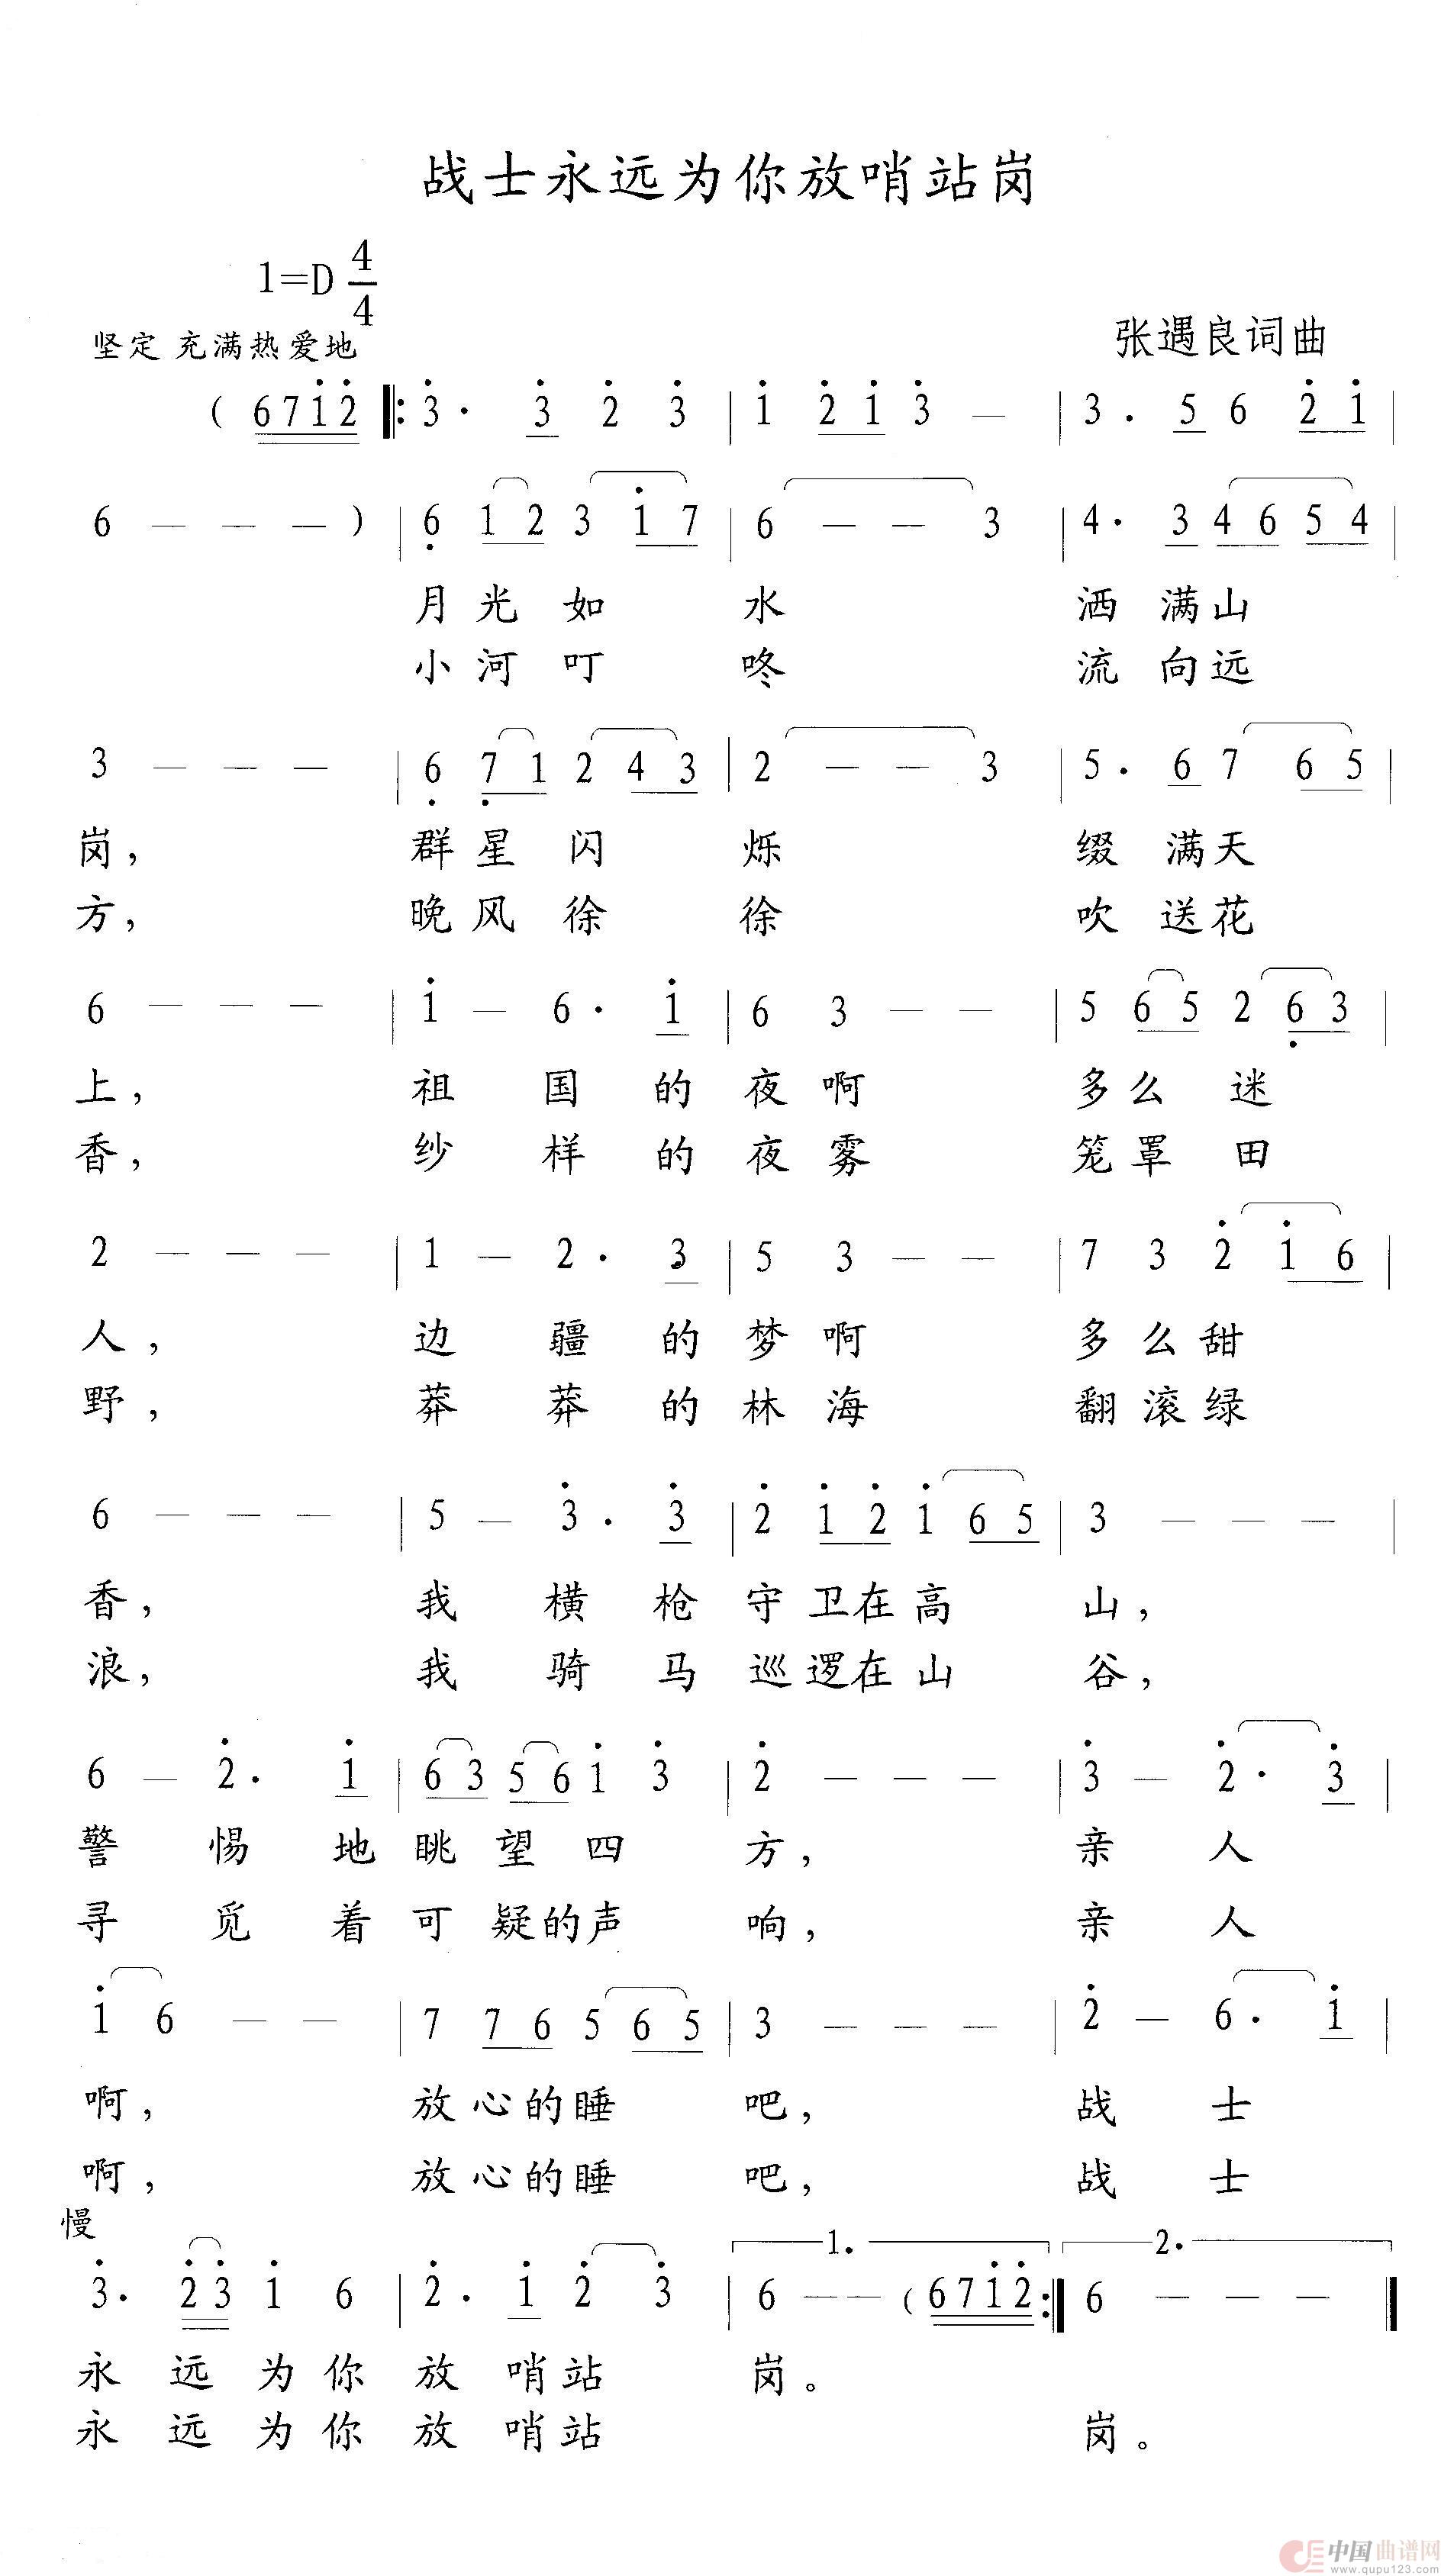 战士永远为你放哨站岗
1=D 4/4
坚定 充满热爱地
张遇良词曲
( 6 7 1̇ 2̇ ‖: 3̇ · 3̇ 2̇ 3̇ | 1̇ 2̇ 1̇ 3̇ — | 3 · 5 6 2̇ 1̇ |
6 — — — ) | 6̣ 1 2 3 1̇ 7 | 6 — — 3 | 4 · 3 4 6 5 4 |
月光如 水 洒满山
小河叮 咚 流向远
3 — — — | 6̣ 7̣ 1 2 4 3 | 2 — — 3 | 5 · 6 7 6 5 |
岗， 群星闪 烁 缀满天
方， 晚风徐 徐 吹送花
6 — — — | 1̇ — 6 · 1̇ | 6 3 — — | 5 6 5 2 6̣ 3 |
上， 祖国的 夜啊 多么迷
香， 纱样的 夜雾 笼罩田
2 — — — | 1 — 2 · 3 | 5 3 — — | 7 3 2̇ 1̇ 6 |
人， 边疆的 梦啊 多么甜
野， 莽莽的 林海 翻滚绿
6 — — — | 5 — 3̇ · 3̇ | 2̇ 1̇ 2̇ 1̇ 6 5 | 3 — — — |
香， 我横枪 守卫在高 山，
浪， 我骑马 巡逻在山 谷，
6 — 2̇ · 1̇ | 6 3 5 6 1̇ 3̇ | 2̇ — — — | 3̇ — 2̇ · 3̇ |
警惕地 眺望四 方， 亲人
寻觅着 可疑的声 响， 亲人
1̇ 6 — — | 7 7 6 5 6 5 | 3 — — — | 2̇ — 6 · 1̇ |
啊， 放心的睡 吧， 战士
啊， 放心的睡 吧， 战士
慢
1. 2.
3̇ · 2̇ 3̇ 1̇ 6 | 2̇ · 1̇ 2̇ 3̇ | 6 — — ( 6 7 1̇ 2̇ :‖ 6 — — — ‖
永远为你 放哨站 岗。
永远为你 放哨站 岗。
中国曲谱网
www.qupu123.com